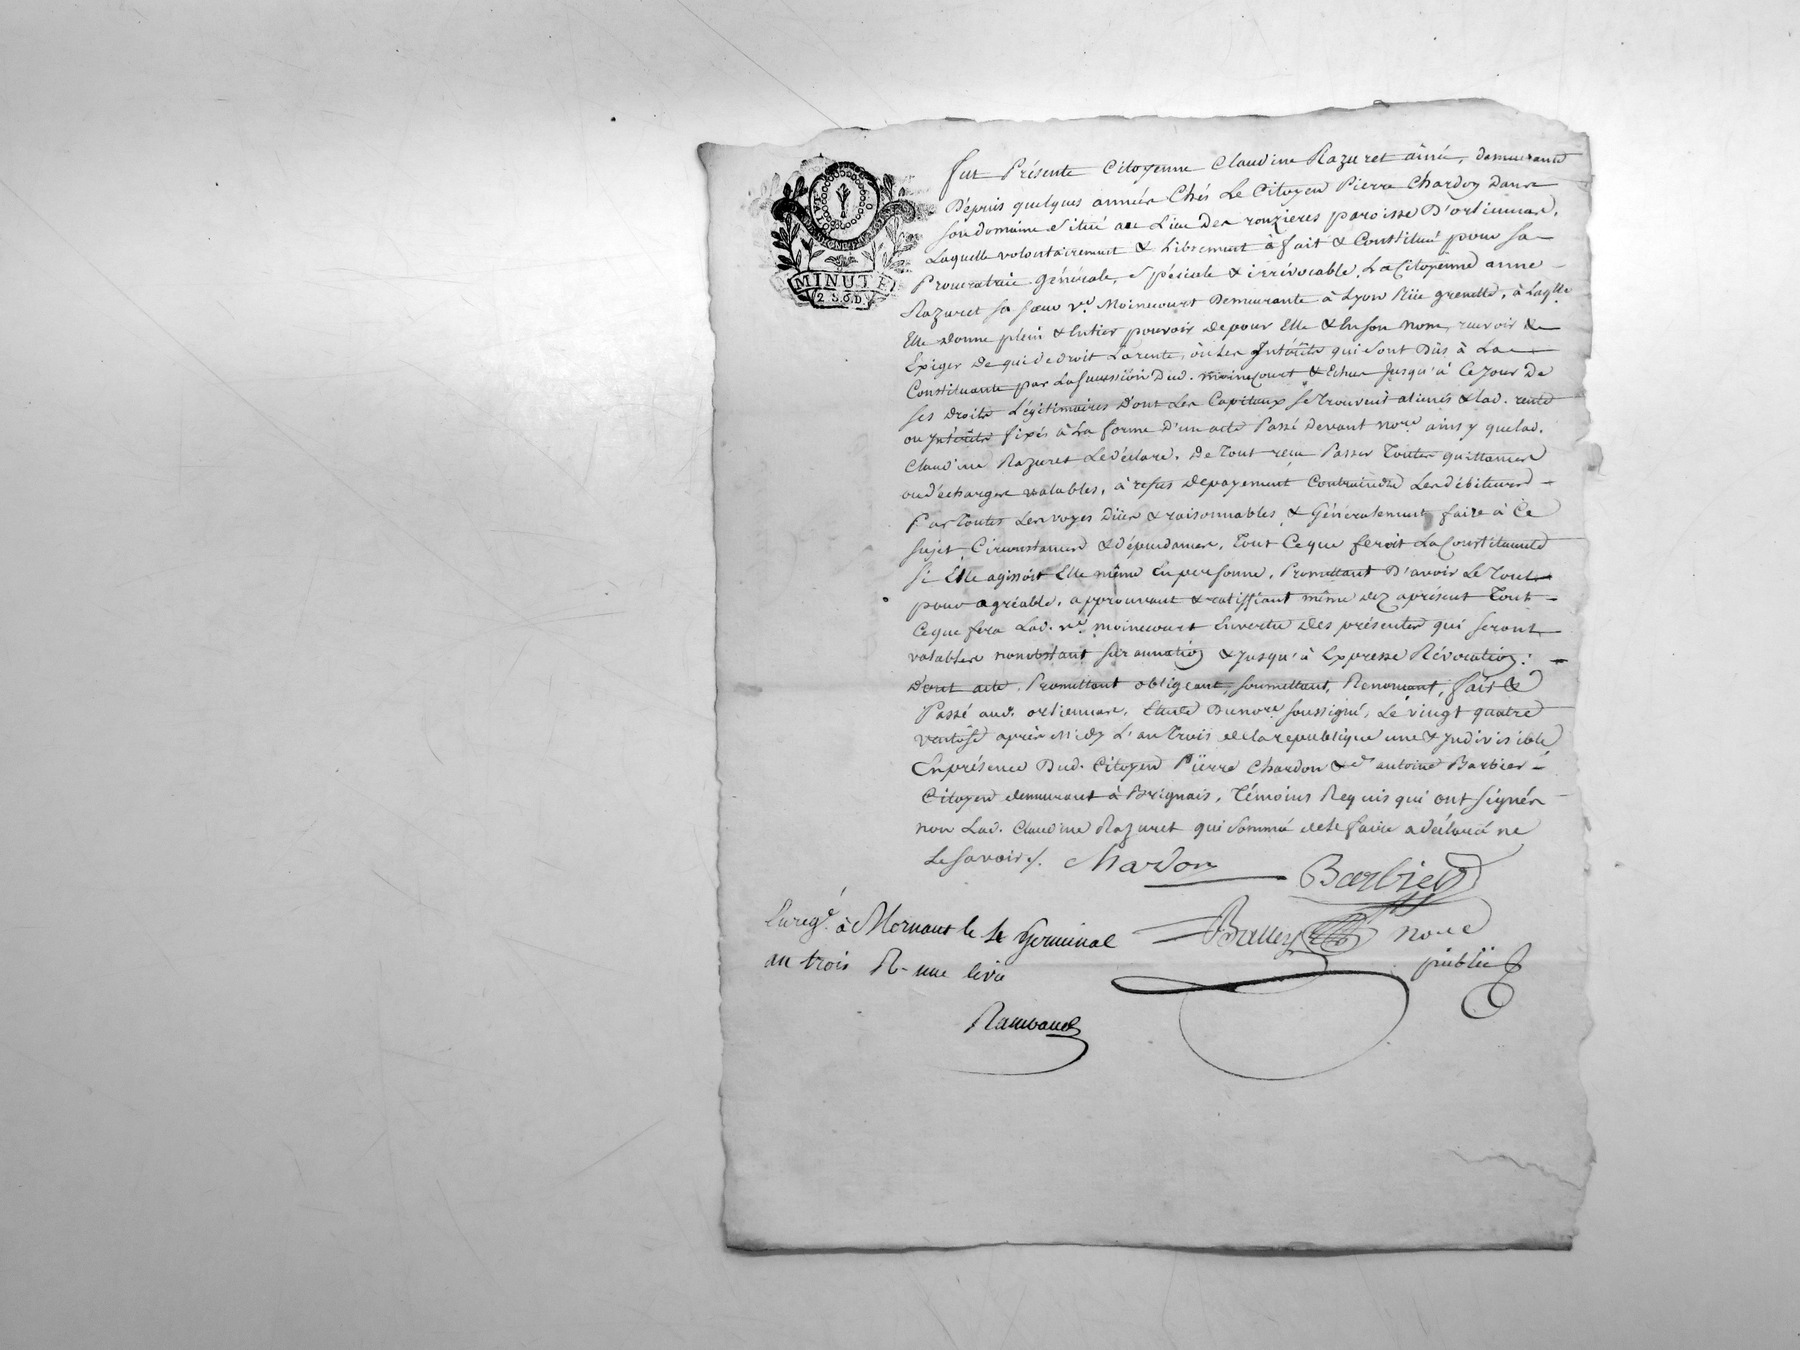 MINUTE
2 S. 6. D.
fut Présente Citoyenne Claudine Razuret ainée, demeurante
Depuis quelques années Chés Le Citoyen Pierre Chardon Dans
son domaine situé au Lieu des ronzières paroisse D'orliennas,
Laquelle volontairement & Librement à fait & Constitué pour sa
Procuratrice Générale, spéciale & irrévocable, La Citoyenne anne
Razuret sa sœur ve. Moinecourt Demeurante à Lyon Rüe grenette, à Laqlle
Elle Donne plein & Entier pouvoir de pour Elle & En son nom, recevoir &
Exiger De qui de droit La rente, ou Les Intérêts qui sont Dûs à La
Constituante par La succession Dud. moinecourt & Echus Jusqu'à Ce Jour De
ses Droits Légitimaires D'ont Les Capitaux se trouvent alienés & lad. rente
ou Intérêts fixés à La forme D'un acte Passé Devant nore ainsy que lad.
Claudine Razuret Le déclare, De Tout reçu Passer Toutes quittances
ou décharges valables, à refus de payement Contraindre Les débiteurs
Par Toutes Les voyes Dües & raisonnables, & Généralement faire à Ce
sujet Circonstances & dépendances, Tout Ce que feroit La Constituante
si Elle agissoit Elle même En personne, Promettant D'avoir Le Tout
pour agréable, approuvant & ratiffiant même dez aprésent Tout
Ce que fera Lad. ve. moinecourt En vertu des présentes qui seront
valables nonobstant surannation & Jusqu'à Expresse Révocation:
D'ont acte, Promettant obligeant, soumettant, Renonçant, fait &
Passé aud. orliennas, Etude Du nore soussigné, Le vingt quatre
ventôse après Midy L'an Trois de la republique une & Indivisible
En présence Dud. Citoyen Pierre Chardon & d' antoine Barbier
Citoyen demeurant à Brignais, Témoins Requis qui ont signés
non Lad. Claudine Razuret qui sommé de Le faire a déclaré ne
Le savoir /.
Chardon
Barbier
Enregé. à Mornant le 4 Germinal
an trois R. une livre
nore
public